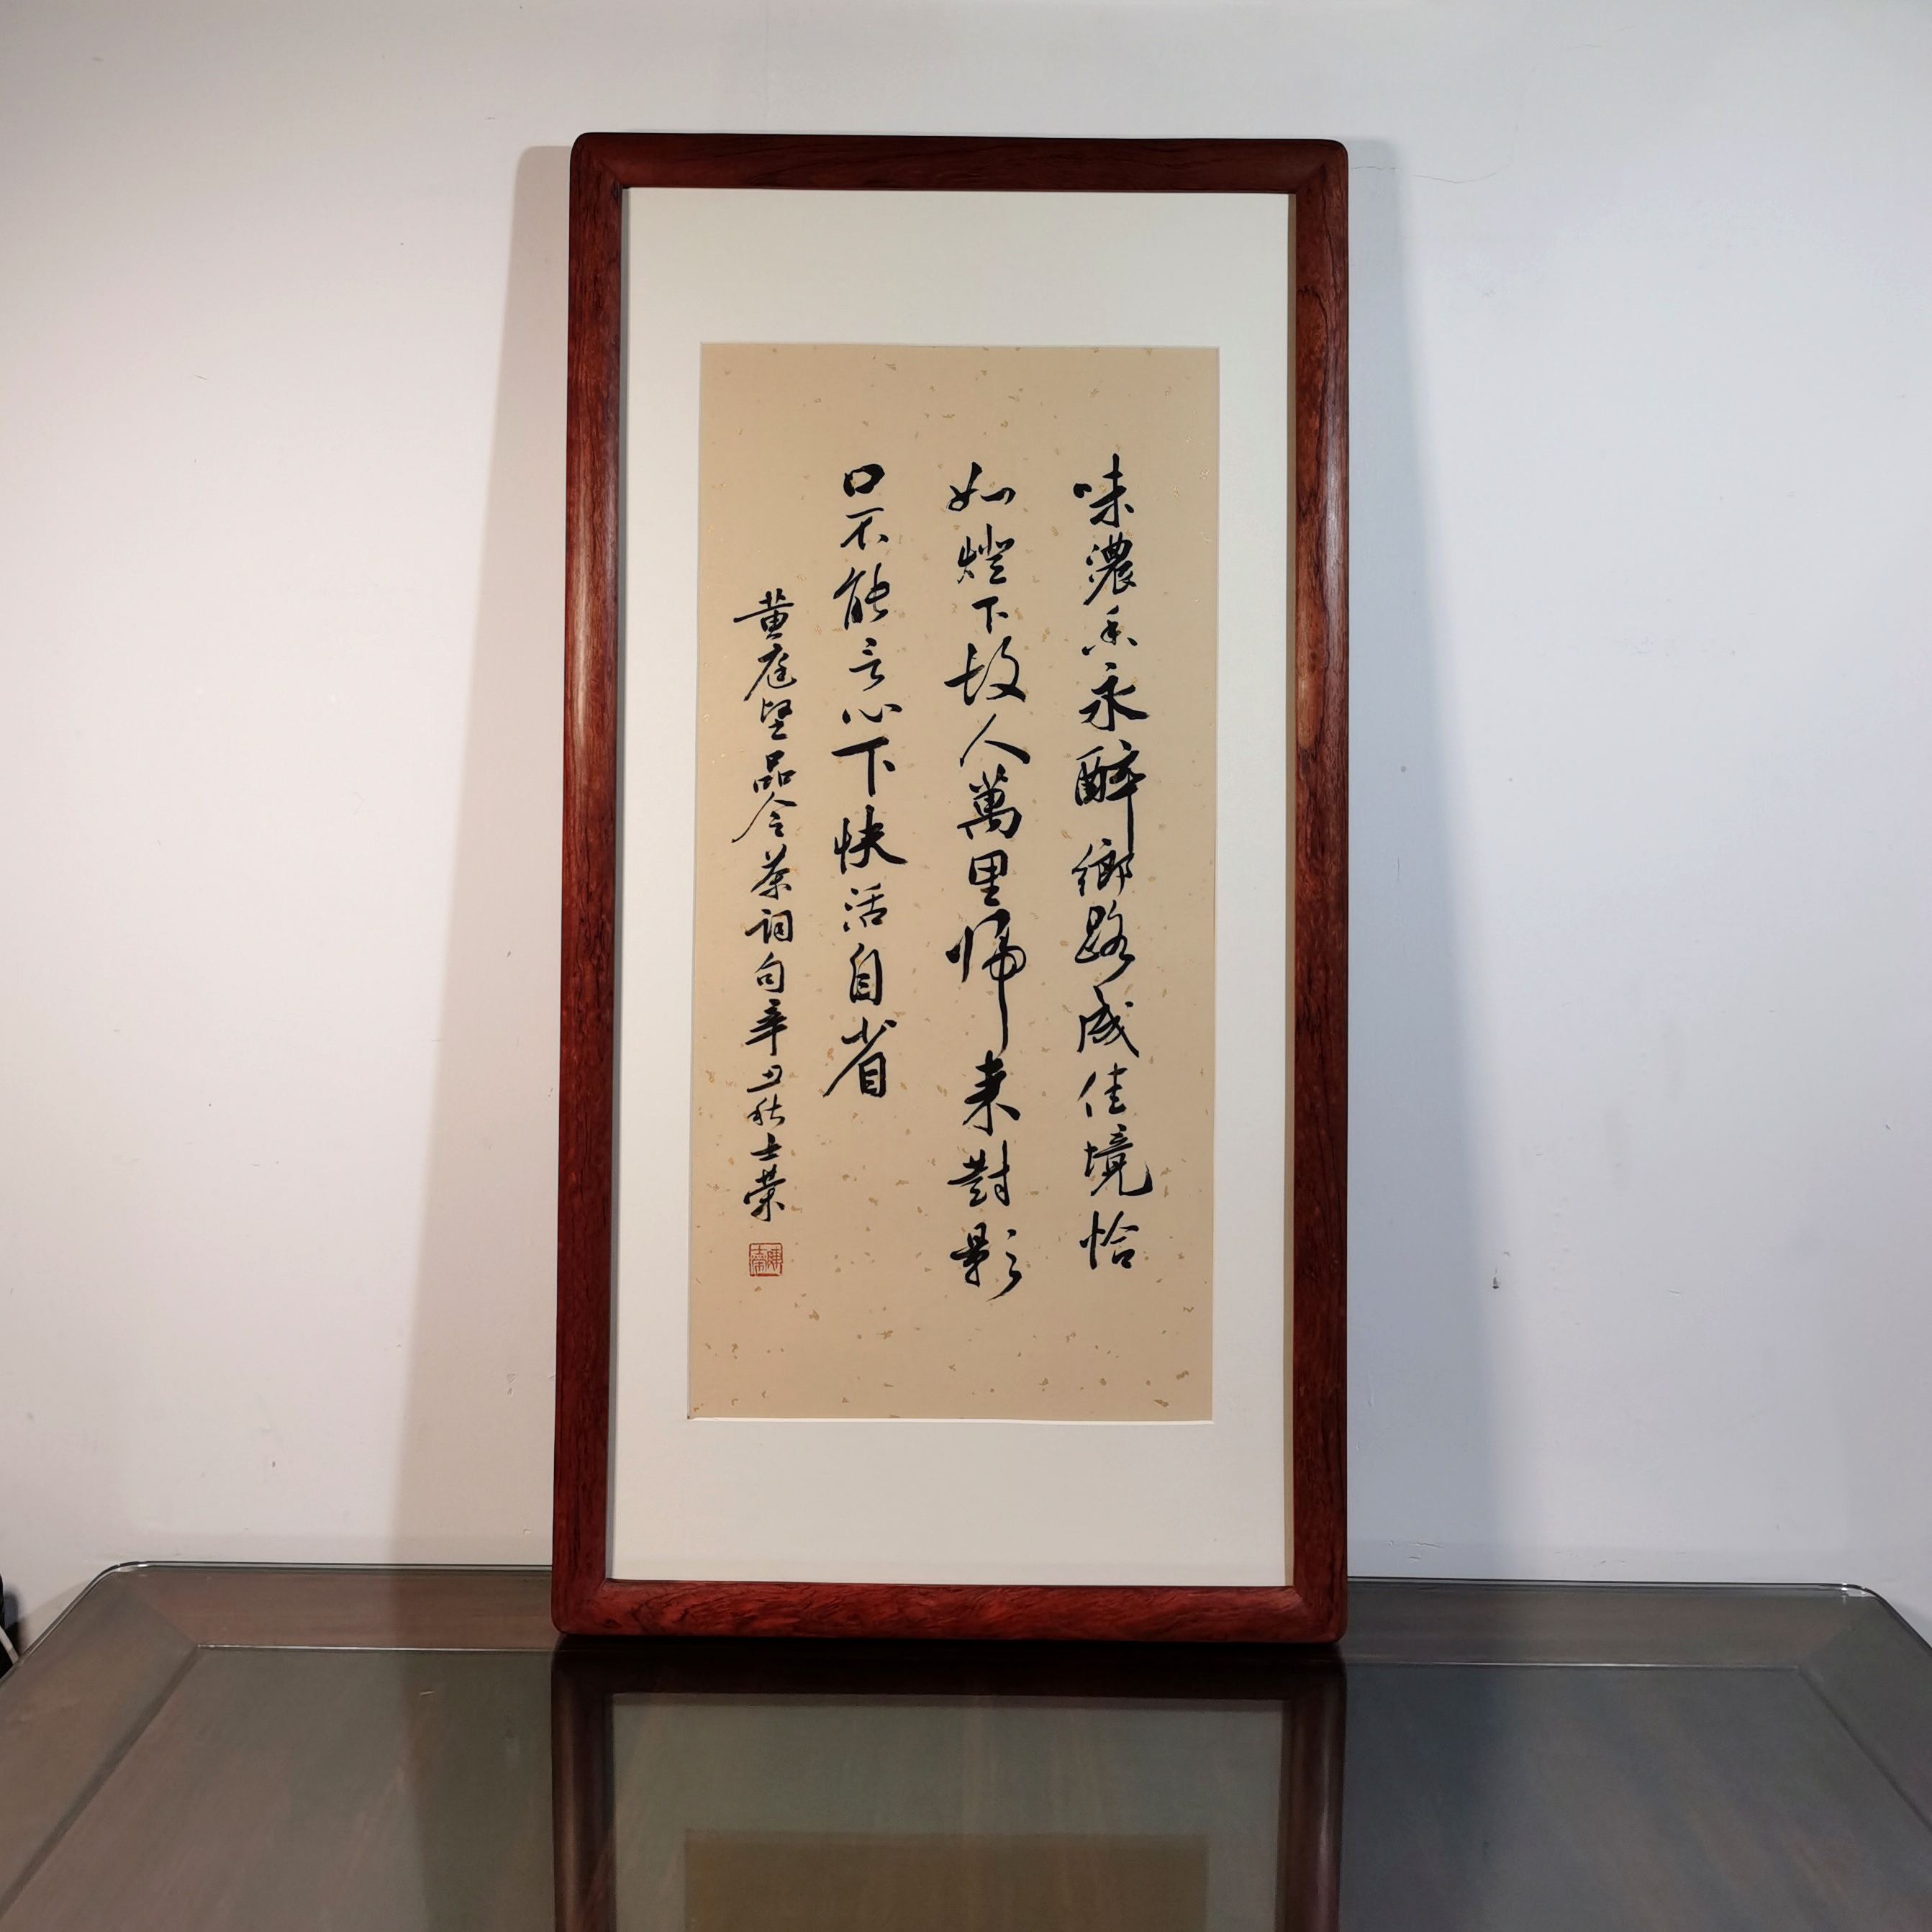 味濃香永醉鄉路成佳境恰
如燈下故人萬里歸来對影
口不能言心下快活自省
黄庭堅品令茶词句辛丑秋士荣